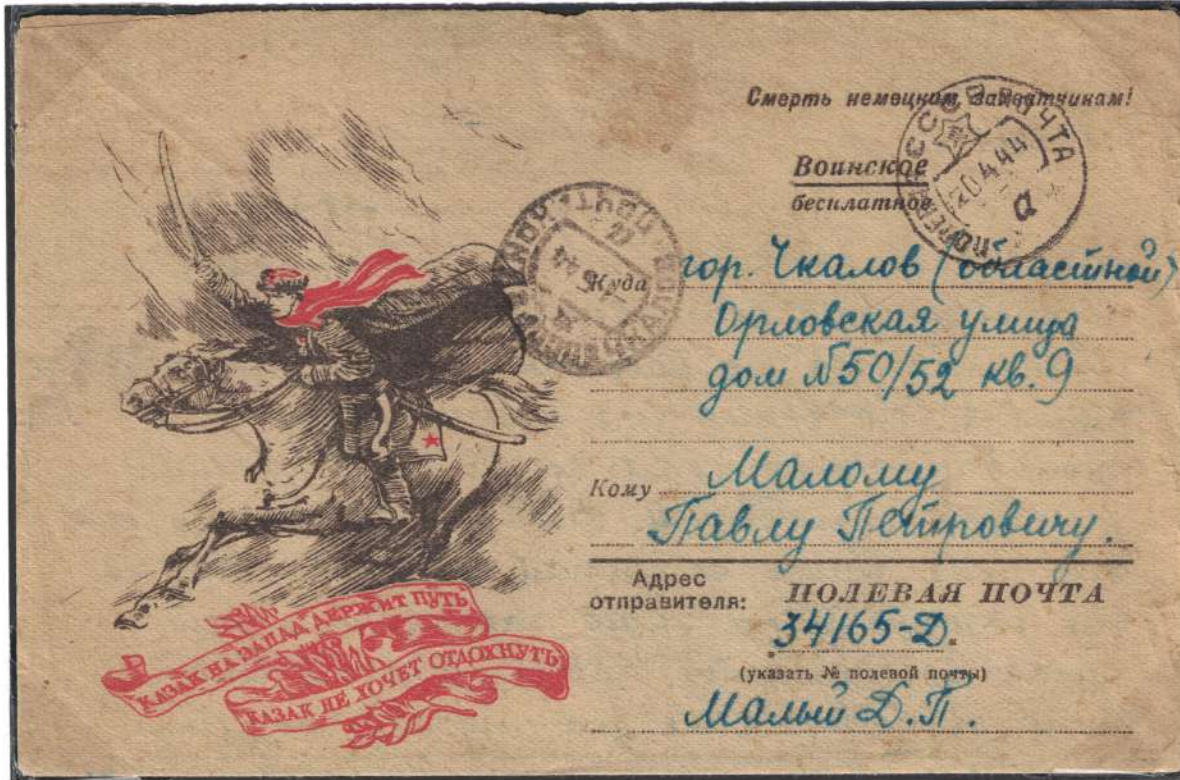 Смерть немецким захватчикам!
Воинское
бесплатное
СССР ПОЧТА
20.4.44
Куда гор. Чкалов (областной)
Орловская улица
дом №50/52 кв. 9
Кому Малому
Павлу Петровичу.
Адрес отправителя: ПОЛЕВАЯ ПОЧТА
34165-Д.
(указать № полевой почты)
Малый Д.П.
КАЗАК НА ЗАПАД ДЕРЖИТ ПУТЬ
КАЗАК НЕ ХОЧЕТ ОТДОХНУТЬ